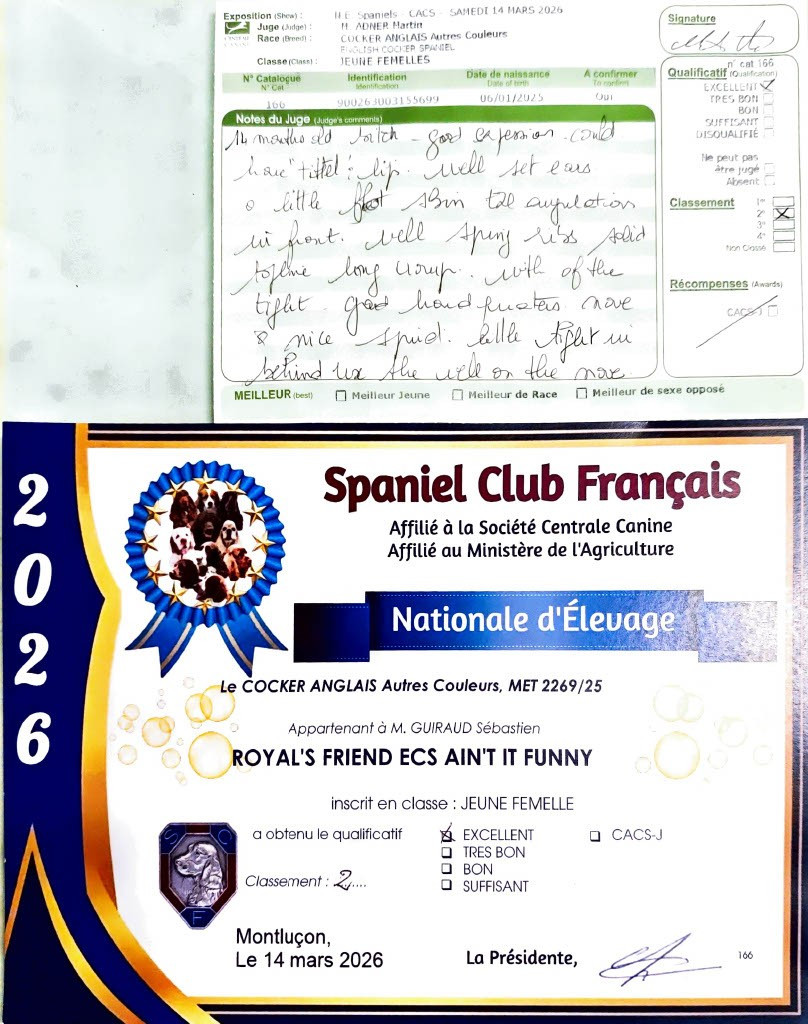 Exposition (Show) : N.E. Spaniels CACS - SAMEDI 14 MARS 2026
Juge (Judge) : M. ADNER Martin
Race (Breed) : COCKER ANGLAIS Autres Couleurs
ENGLISH COCKER SPANIEL
Classe (Class) : JEUNE FEMELLES
CENTRALE CANINE
N° Catalogue Identification Date de naissance A confirmer
N° Cat Identification Date of birth To confirm
166 900263003155699 06/01/2025 Oui
Notes du Juge (Judge's comments)
14 months old bitch - good expression. could
have lip. well set ears
a little
in front. well spring ribs solid
topline long croup. of the
tight. good hand quaters. move
nice little tight in
behind the well on the move.
MEILLEUR (best) Meilleur Jeune Meilleur de Race Meilleur de sexe opposé
Signature
n° cat 166
Qualificatif (Qualification)
EXCELLENT
TRES BON
BON
SUFFISANT
DISQUALIFIÉ
Ne peut pas
être jugé
Absent
Classement 1er
2e
3e
4e
Non Classé
Récompenses (Awards)
CACS-J
2026
Spaniel Club Français
Affilié à la Société Centrale Canine
Affilié au Ministère de l'Agriculture
Nationale d'Élevage
Le COCKER ANGLAIS Autres Couleurs, MET 2269/25
Appartenant à M. GUIRAUD Sébastien
ROYAL'S FRIEND ECS AIN'T IT FUNNY
inscrit en classe : JEUNE FEMELLE
a obtenu le qualificatif EXCELLENT CACS-J
TRES BON
BON
SUFFISANT
Classement : 2....
S C F
Montluçon,
Le 14 mars 2026
La Présidente,
166